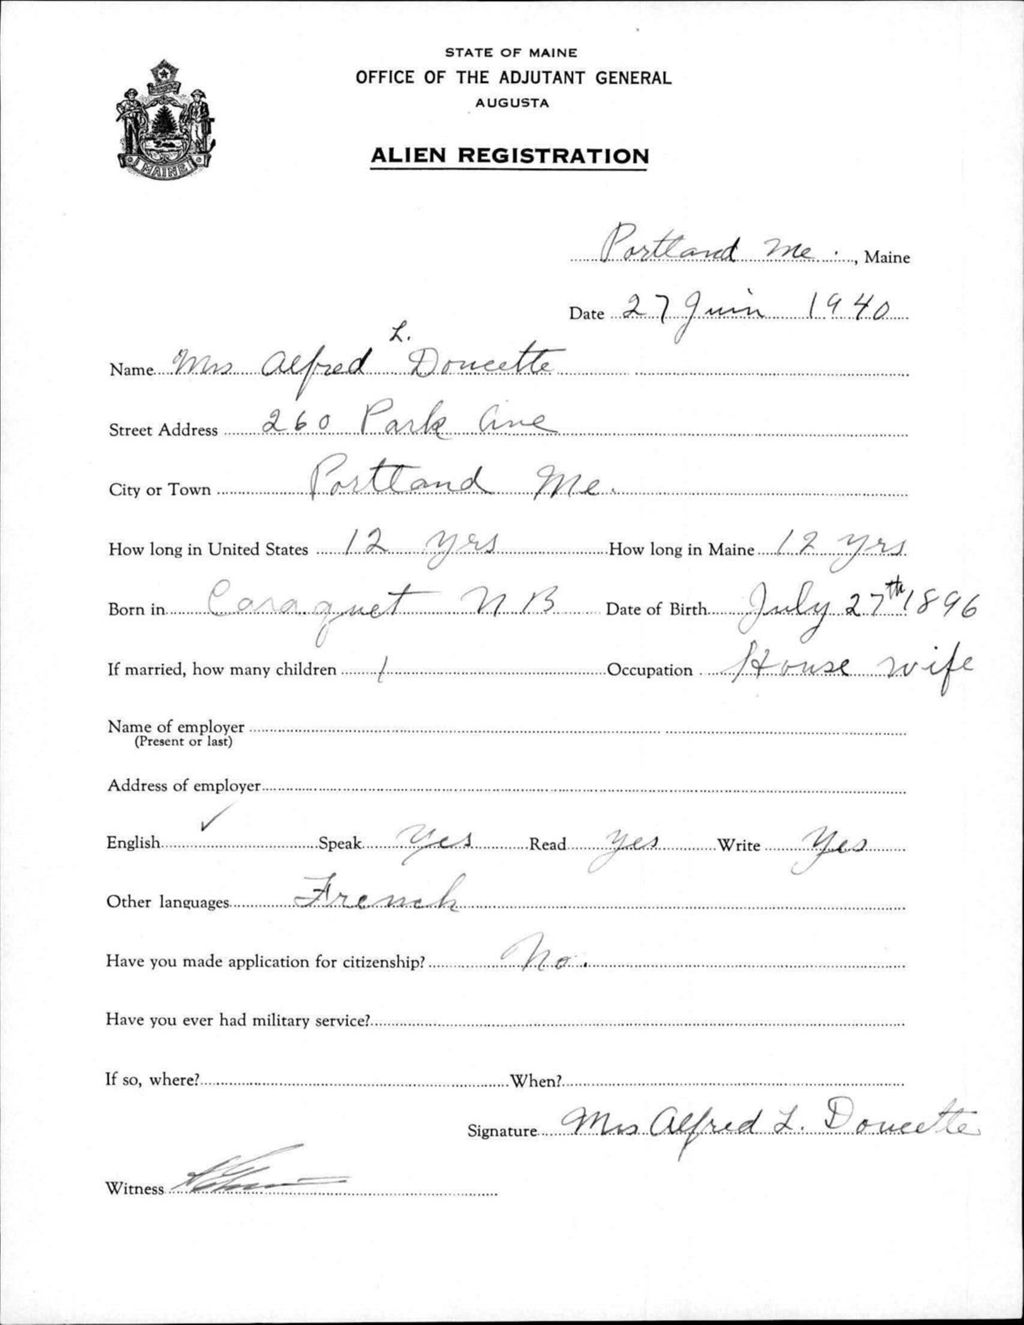 STATE OF MAINE
OFFICE OF THE ADJUTANT GENERAL
AUGUSTA
ALIEN REGISTRATION
MAINE
Portland Me., Maine
Date 27 Juin 1940
Name Mrs Alfred L. Doucette
Street Address 260 Park Ave
City or Town Portland Me.
How long in United States 12 yrs How long in Maine 12 yrs
Born in Caraquet N B Date of Birth July 27th 1896
If married, how many children 1 Occupation House wife
Name of employer
(Present or last)
Address of employer
English ✓ Speak Yes Read Yes Write Yes
Other languages French
Have you made application for citizenship? No.
Have you ever had military service?
If so, where? When?
Signature Mrs Alfred L. Doucette
Witness